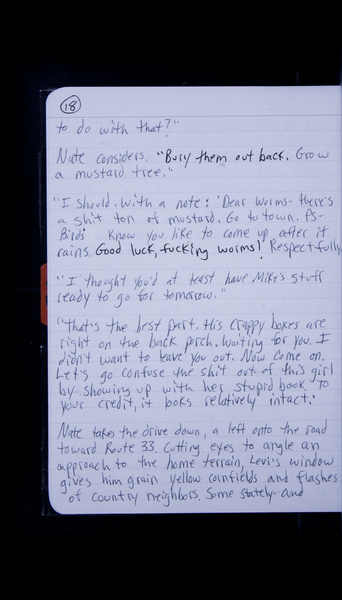 18
to do with that?"
Nate considers. "Bury them out back. Grow
a mustard tree."
"I should. With a note: 'Dear Worms- there's
a shit ton of mustard. Go to town. PS-
Birds know you like to come up after it
rains. Good luck, fucking worms! Respectfully
"I thought you'd at least have Mike's stuff
ready to go for tomorrow."
"That's the best part. His crappy boxes are
right on the back porch. Waiting for you. I
didn't want to leave you out. Now come on.
Let's go confuse the shit out of this girl
by showing up with her stupid book. To
your credit, it looks relatively intact."
Nate takes the drive down, a left onto the road
toward Route 33. Cutting eyes to angle an
approach to the home terrain, Levi's window
gives him grain yellow cornfields and flashes
of country neighbors. Some stately and